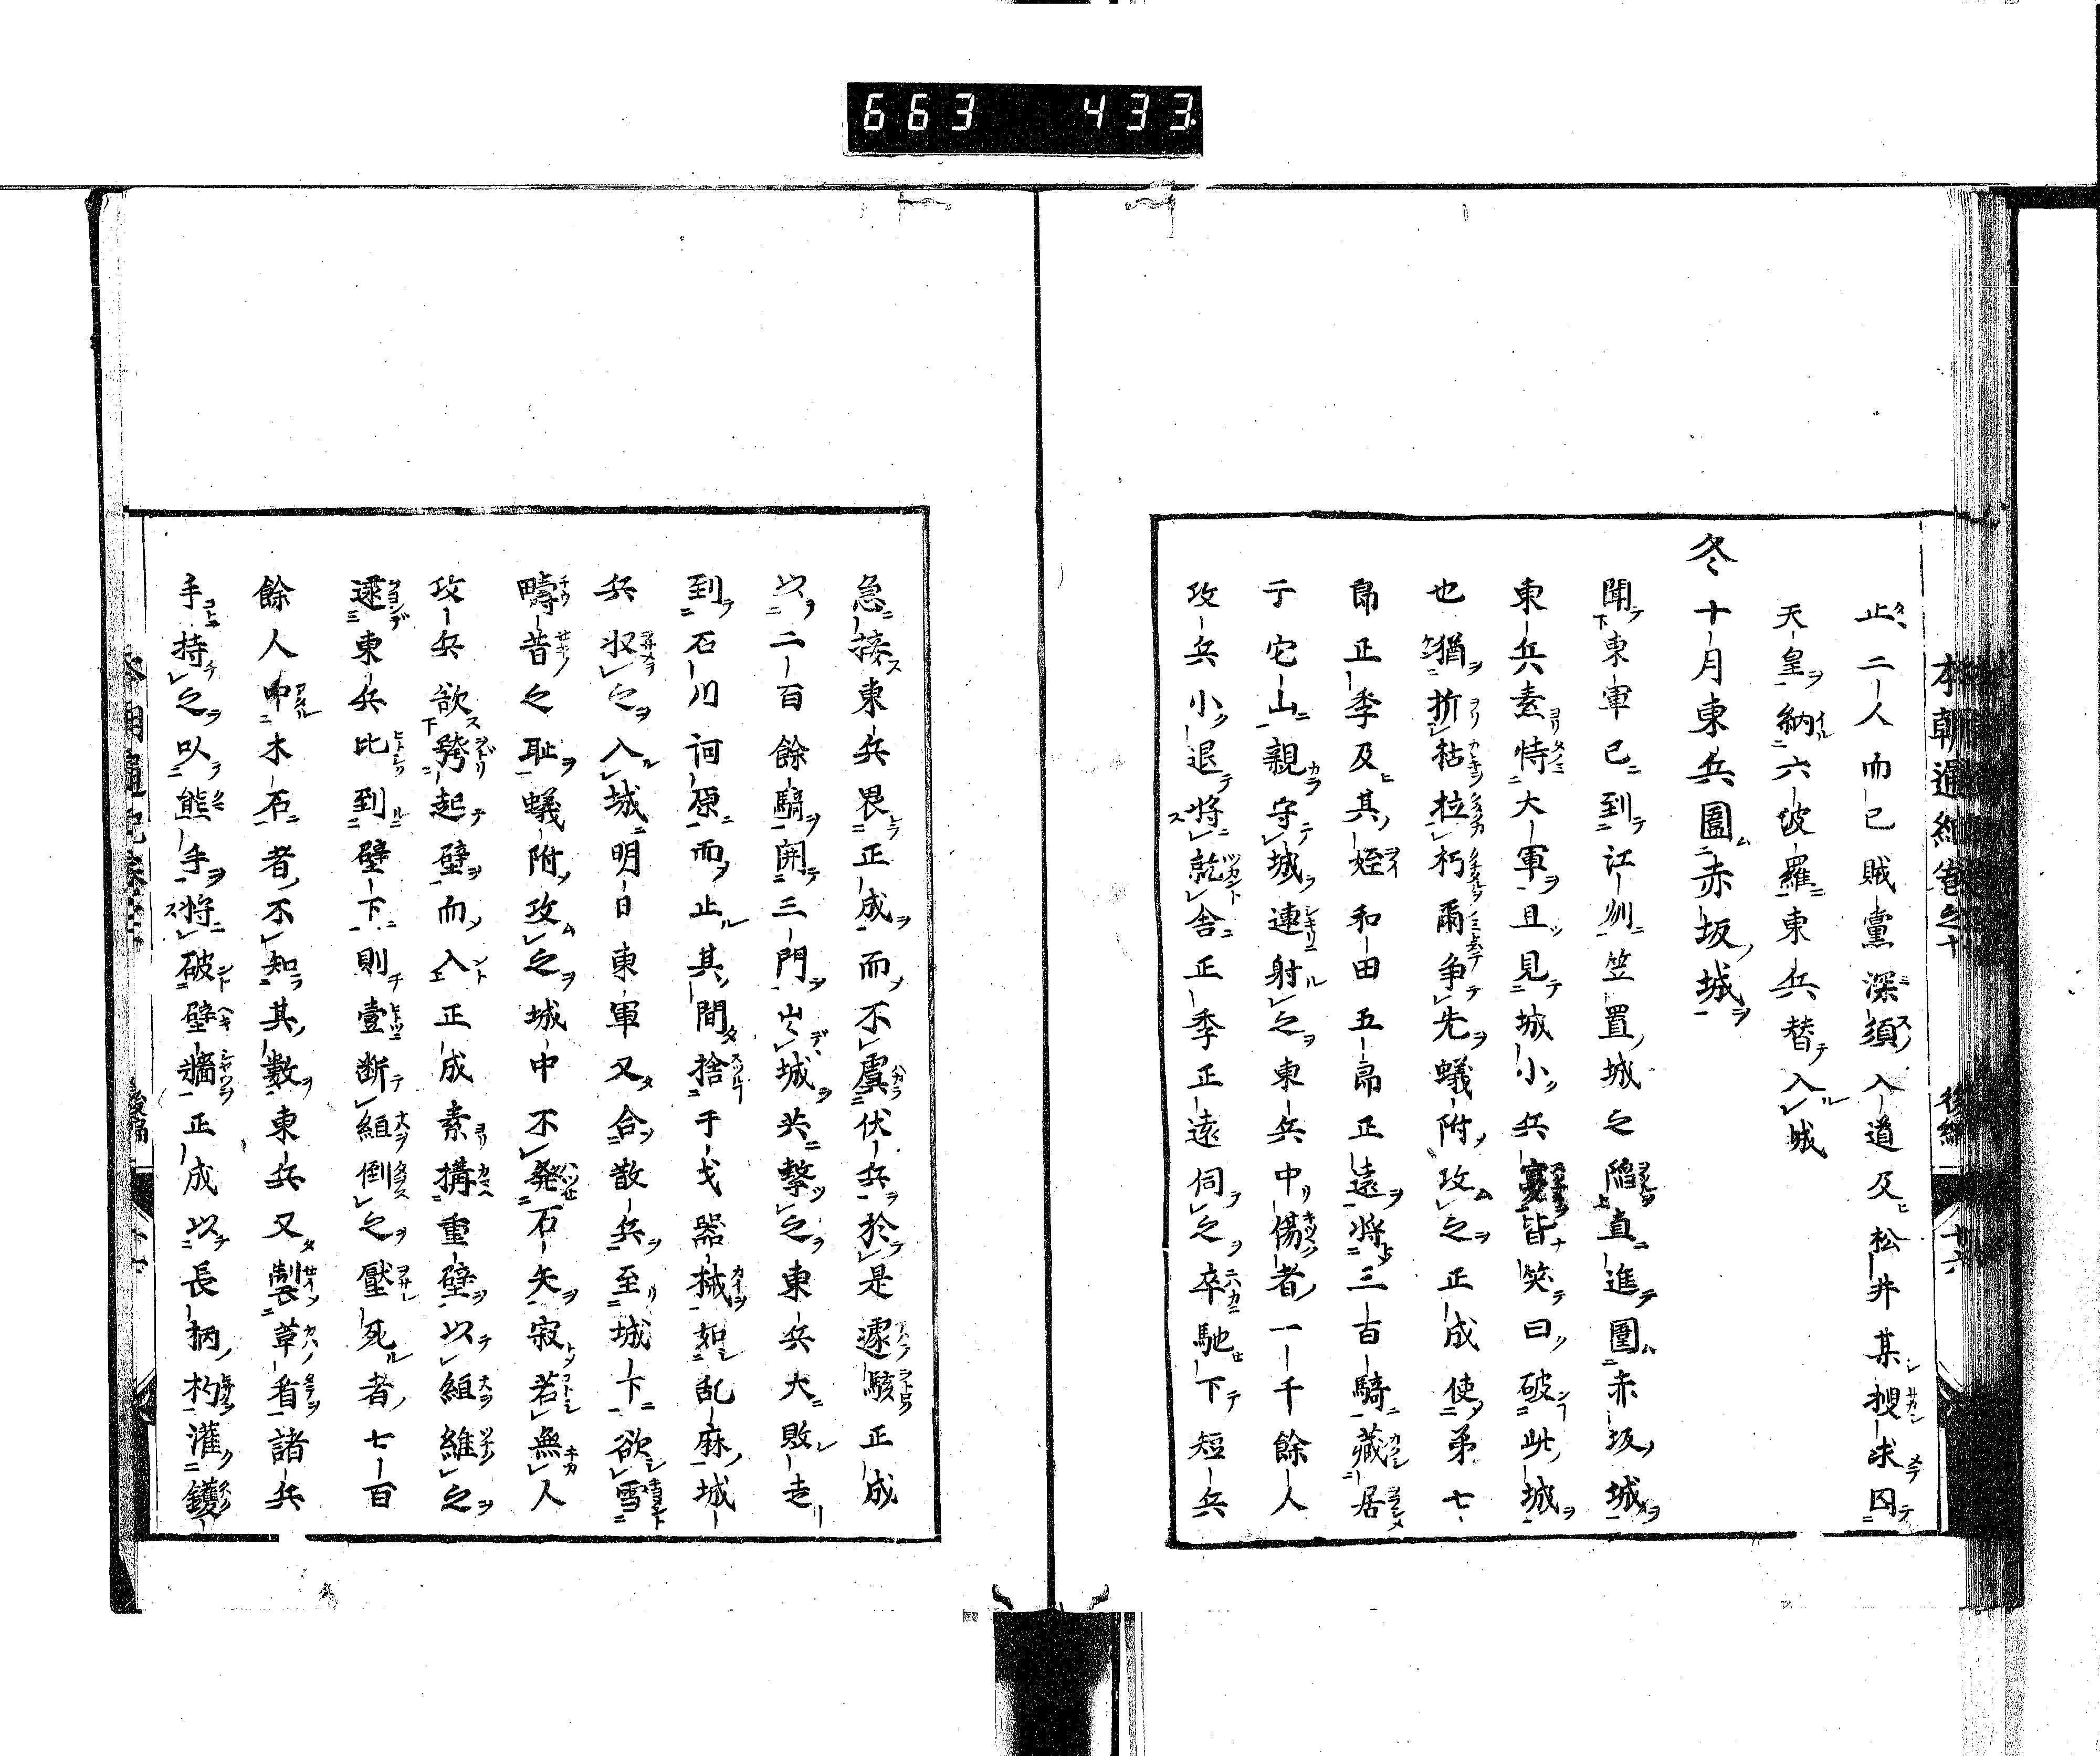 663 433
本朝通紀卷之十 後編 十六
止二人而已賊黨深須入道及松井某搜求囚
天皇納六波羅東兵替入城
冬十月東兵圍赤坂城
聞東軍已到江州笠置城之陷直進圍赤坂城
東兵素恃大軍且見城小兵寡皆笑曰破此城
也猶折枯拉朽爾争先蟻附攻之正成使弟七
郎正季及其姪和田五郎正遠將三百騎藏居
于它山親守城連射之東兵中傷者一千餘人
攻兵小退將就舍正季正遠伺之卒馳下短兵
急接東兵畏正成而不虞伏兵於是遽駭正成
以二百餘騎開三門出城共擊之東兵大敗走
到石川河原而止其間捨于戈器械如乱麻城
兵収之入城明日東軍又合散兵至城下欲雪
疇昔之恥蟻附攻之城中不発石矢寂若無人
攻兵欲誇起壁而入正成素搆重壁以組維之
逮東兵比到壁下則壹断組倒之壓死者七百
餘人中木石者不知其數東兵又製革盾諸兵
手持之以熊手將破壁牆正成以長柄杓灌鑊